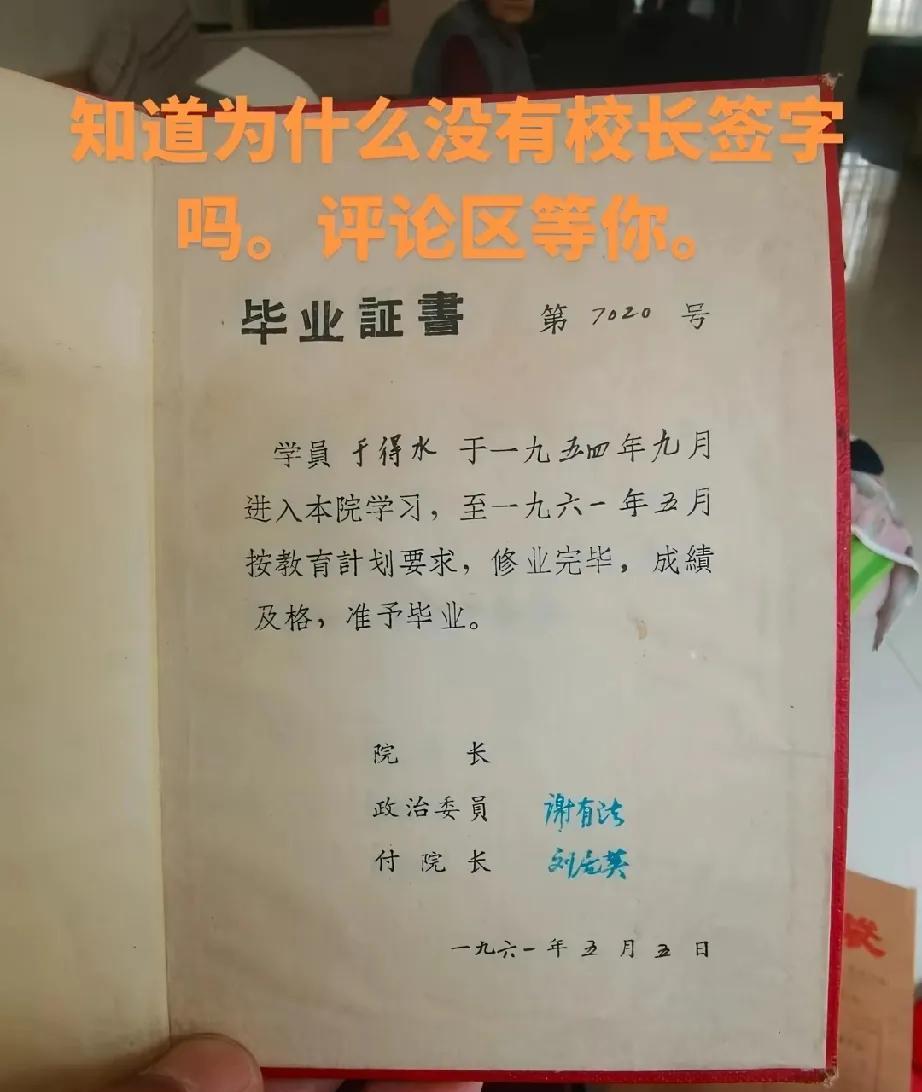 知道为什么没有校长签字
吗。评论区等你。
毕业証書 第7020号
学員于得水于一九五四年九月
进入本院学习，至一九六一年五月
按教育計划要求，修业完毕，成績
及格，准予毕业。
院 长
政治委員 谢有法
付院长 刘居英
一九六一年五月五日